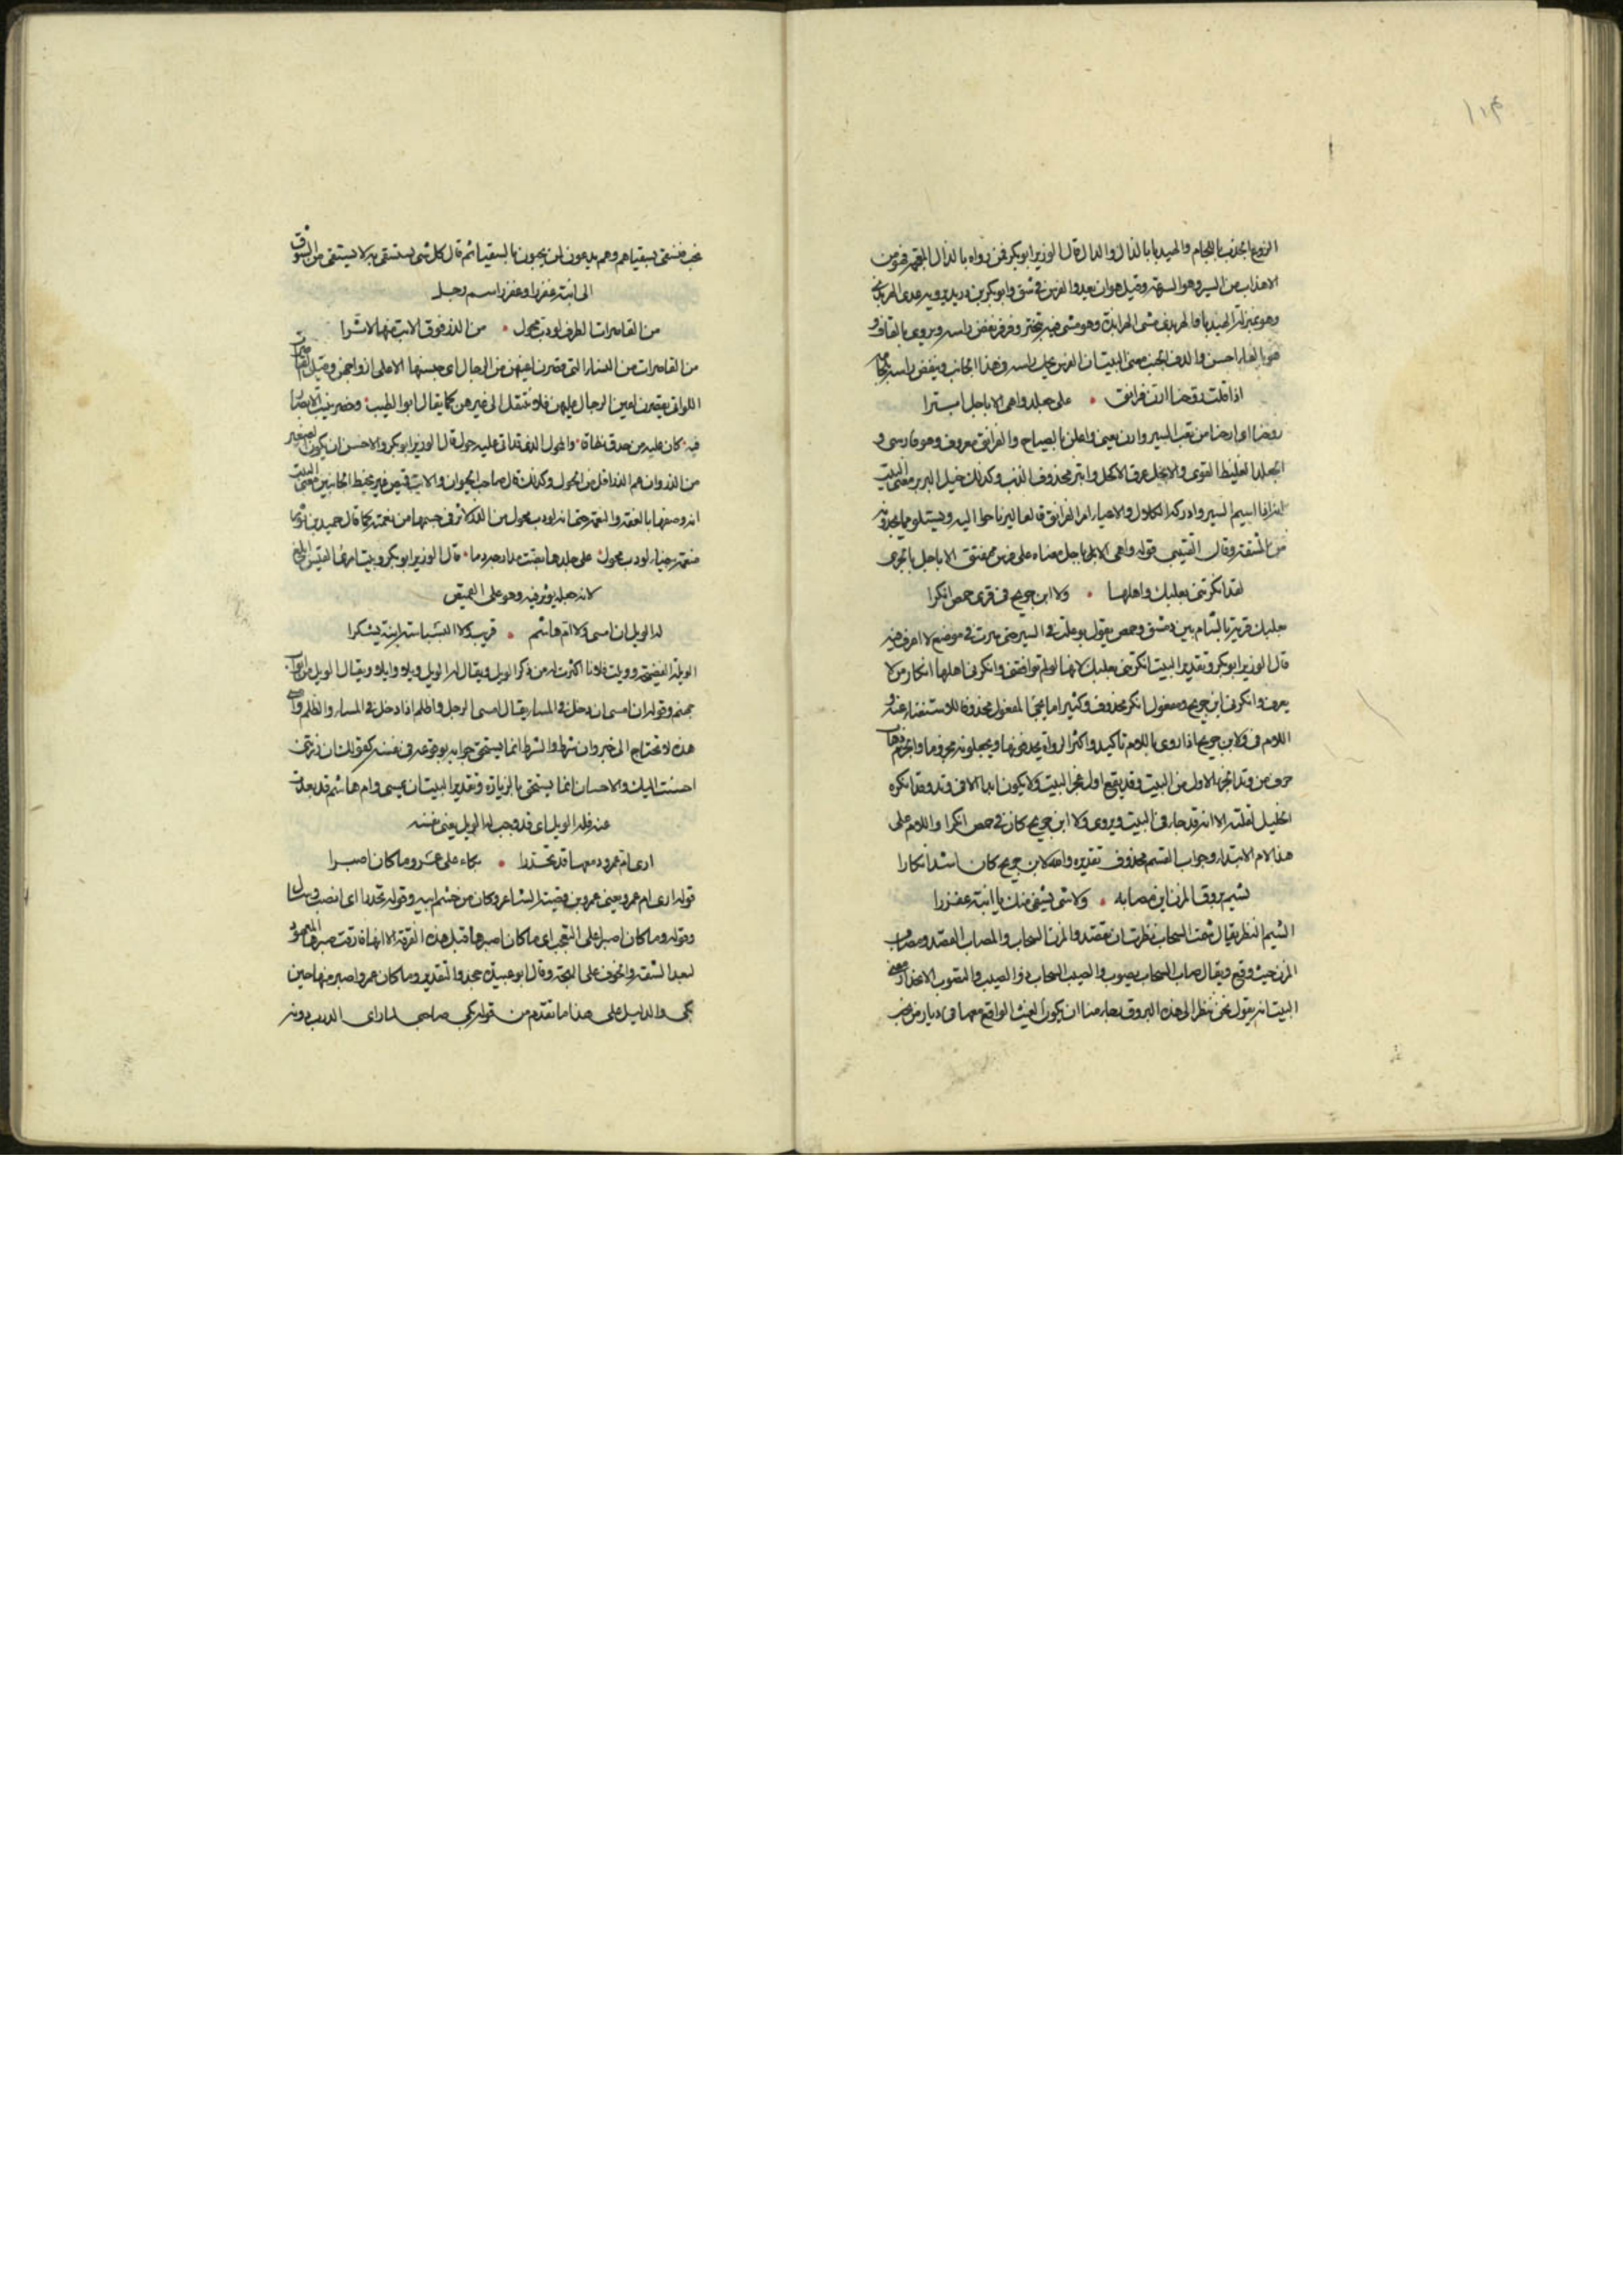 ١١٤
الزوع الجذب باللجام والهيدبا بالذال والدال قال الوزير ابو بكر فمن رواه بالذال المعجمة فهو من
الاهذاب من السير وهو السرعة وقيل هو ان يعدو الفرس في شق وابو بكر بن دريد يرويه عدى الهربذى
وهو بمنزلة الهيدبا فالهربذى مشى الهرابذة وهو مشى فيه تبختر وفرفر نفض راسه ويروى بالقاف و
هو بالفاء احسن والدف الجنب معنى البيت ان الفرس يميل راسه في هذا الجانب وينفض راسه
اذا قلت روحنا ارن فرانق • على جلعد واهى الاباجل ابترا
روحنا اى ارحنا من تعب السير وارن يعنى واعلن بالصياح والفرانق معروف وهو فارسى و
الجلعد الغليظ القوى والابجل عرق الاكحل وابتر محذوف الذنب وكذلك خيل البريد معنى البيت
انه اذا اسيم السير وادركه الكلال والاعياء امر الفرانق فالغا اليه ناحوا اليه ويستلو مما يجدونه
من المشقة وقال القتيبى قوله واهى الاباجل معناه على فرس منفتق الاباجل بالجرى
لقد انكرتنى بعلبك واهلها • ولا ابن جريج فى قرى حمص انكرا
بعلبك قرية بالشام بين دمشق وحمص يقول بوعلت في السير حتى صرت في موضع لا اعرف فيه
قال الوزير ابو بكر وتقدير البيت انكرتنى بعلبك لانها لو لم توافقنى وانكرنى اهلها انكار من لا
يعرف وانكرنى ابن جريج ومفعول انكر محذوف وكثيرا ما يجئ المفعول محذوفا للاستغناء عنه و
اللام فى ولابن جريج اذا روى باللام تاكيد واكثر الرواة يحذفها ويجعلونه مخروما والخرم ذهاب
حرف من وتد الجزء الاول من البيت وقد يقع اول عجز البيت ولا يكون ابدا الا فى وتد وقد انكره
الخليل لقلته الا انه قد جاء فى البيت ويروى ولا ابن جريج كان في حمص انكرا واللام على
هذا لام الابتداء وجواب القسم محذوف تقديره والله لابن جريج كان اشد انكارا
نشيم بروق المزن اين مصابه • ولا شى يشفى منك يا ابنة عفزرا
الشيم النظر يقال شمت السحاب نظرت اين يقصد والمزن السحاب والمصاب القصد ومصاب
المزن حيث وقع ويقال صاب السحاب يصوب والصيب السحاب ذو الصيب والتصوب الانحدار معنى
البيت انه يقول نحن ننظر الى هذه البروق رجاء منا ان يكون الغيث الواقع معها فى ديار من نحب
نحب فنسقى بسقياهم وهم يدعون لمن يحبون بالسقيا ثم قال كل شى يستسقى به لا يستشفى من الشوق
الى ابنة عفزرا وعفزرا اسم رجل
من القاصرات الطرف لو دب محول • من الذر فوق الاتب منها لاثرا
من القاصرات من النساء التى قصرن اعينهن من الرجال اى حبسنها الا على ازواجهن وقيل القاصرات
اللواتى يقصرن اعين الرجال عليهن فلا تنتقل الى غيرهن كما يقال ابو الطيب: وخصر تثبت الابصار
فيه • كان عليه من حدق نطاقا • والمحول الذى قد اتى عليه حول قال الوزير ابو بكر والاحسن ان يكون الصغير
من الذر وان هم الذر اقل من الحول وكذلك قال صاحب الحيوان والاتب قميص غير مخيط الجانبين معنى البيت
انه وصفها بالعقة والنعمة حتى انه لو دب محول من الذر لاثر فى جسمها من نعمته كما قال حميد بن ثور
منعمة بيضاء لو دب محول • على جلدها بضت مدارجه دما • قال الوزير ابو بكر وبيت امرئ القيس ابلغ
لانه جعله يوثر فيه وهو على القميص
له الويل ان امسى ولا ام هاشم • قريب ولا البسباسة ابنة يشكرا
الويلة الفضيحة وويلت فلانا اكثرت له من ذكر الويل ويقال له الويل ويلا وايلا ويقال الويل من ابواب
جهنم وقوله ان امسى ان دخل في المساء يقال امسى الرجل واظلم اذا دخل في المساء والظلم وامسى
هذه لا تحتاج الى خبر وان شرط والشرط انما يستحق جوابه بوقوعه فى نفسه كقولك ان زرتنى
احسنت اليك والاحسان انما يستحق بالزيارة وتقدير البيت ان يمسى وام هاشم قد بعدت
عنه فله الويل اى قد وجب له الويل يعنى نفسه
ارى ام عمرو دمعها قد تحدرا • بكاء على عمرو وما كان اصبرا
قوله ارى ام عمرو يعنى عمرو بن قميئة الشاعر وكان من خشم ابيه وقوله تحدرا اى انصب وسال
وقوله وما كان اصبرا على التعجب اى ما كان اصبرها قبل هذه الفرقة الا انها فارقت صبرها المعهود
لبعد الشقة والخوف على المنية وقال ابو عبيدة يجوز التقدير وما كان عمرو اصبر منها حين
بكى والدليل على هذا ما تقدم من قوله بكى صاحبى لما راى الدرب دونه